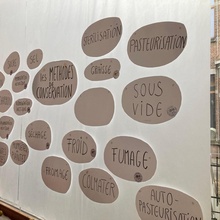 STÉRILISATION
PASTEURISATION
LES MÉTHODES
DE
CONSERVATION
GRAISSE
SOUS
VIDE
SÉCHAGE
FROID
FUMAGE
FROMAGE
COLMATER
AUTO-
PASTEURISATION